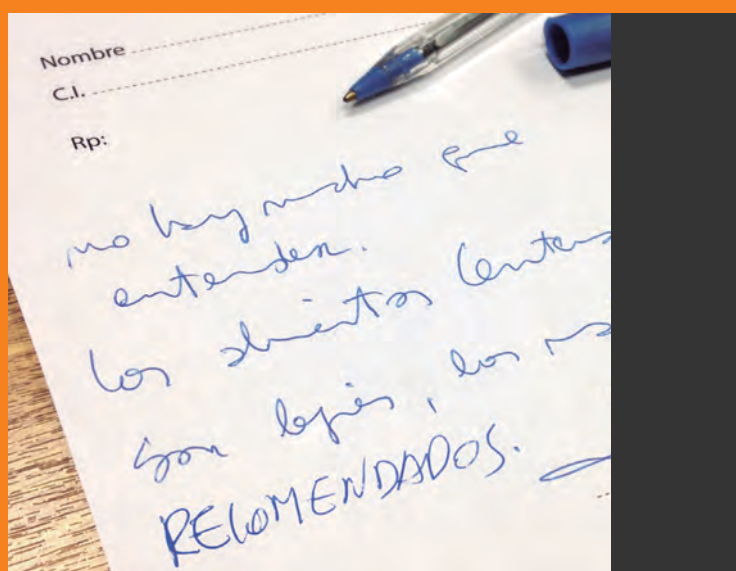 Nombre
C.I.
Rp:
no hay mucho que
entender.
Los alimentos
son , los
RECOMENDADOS.